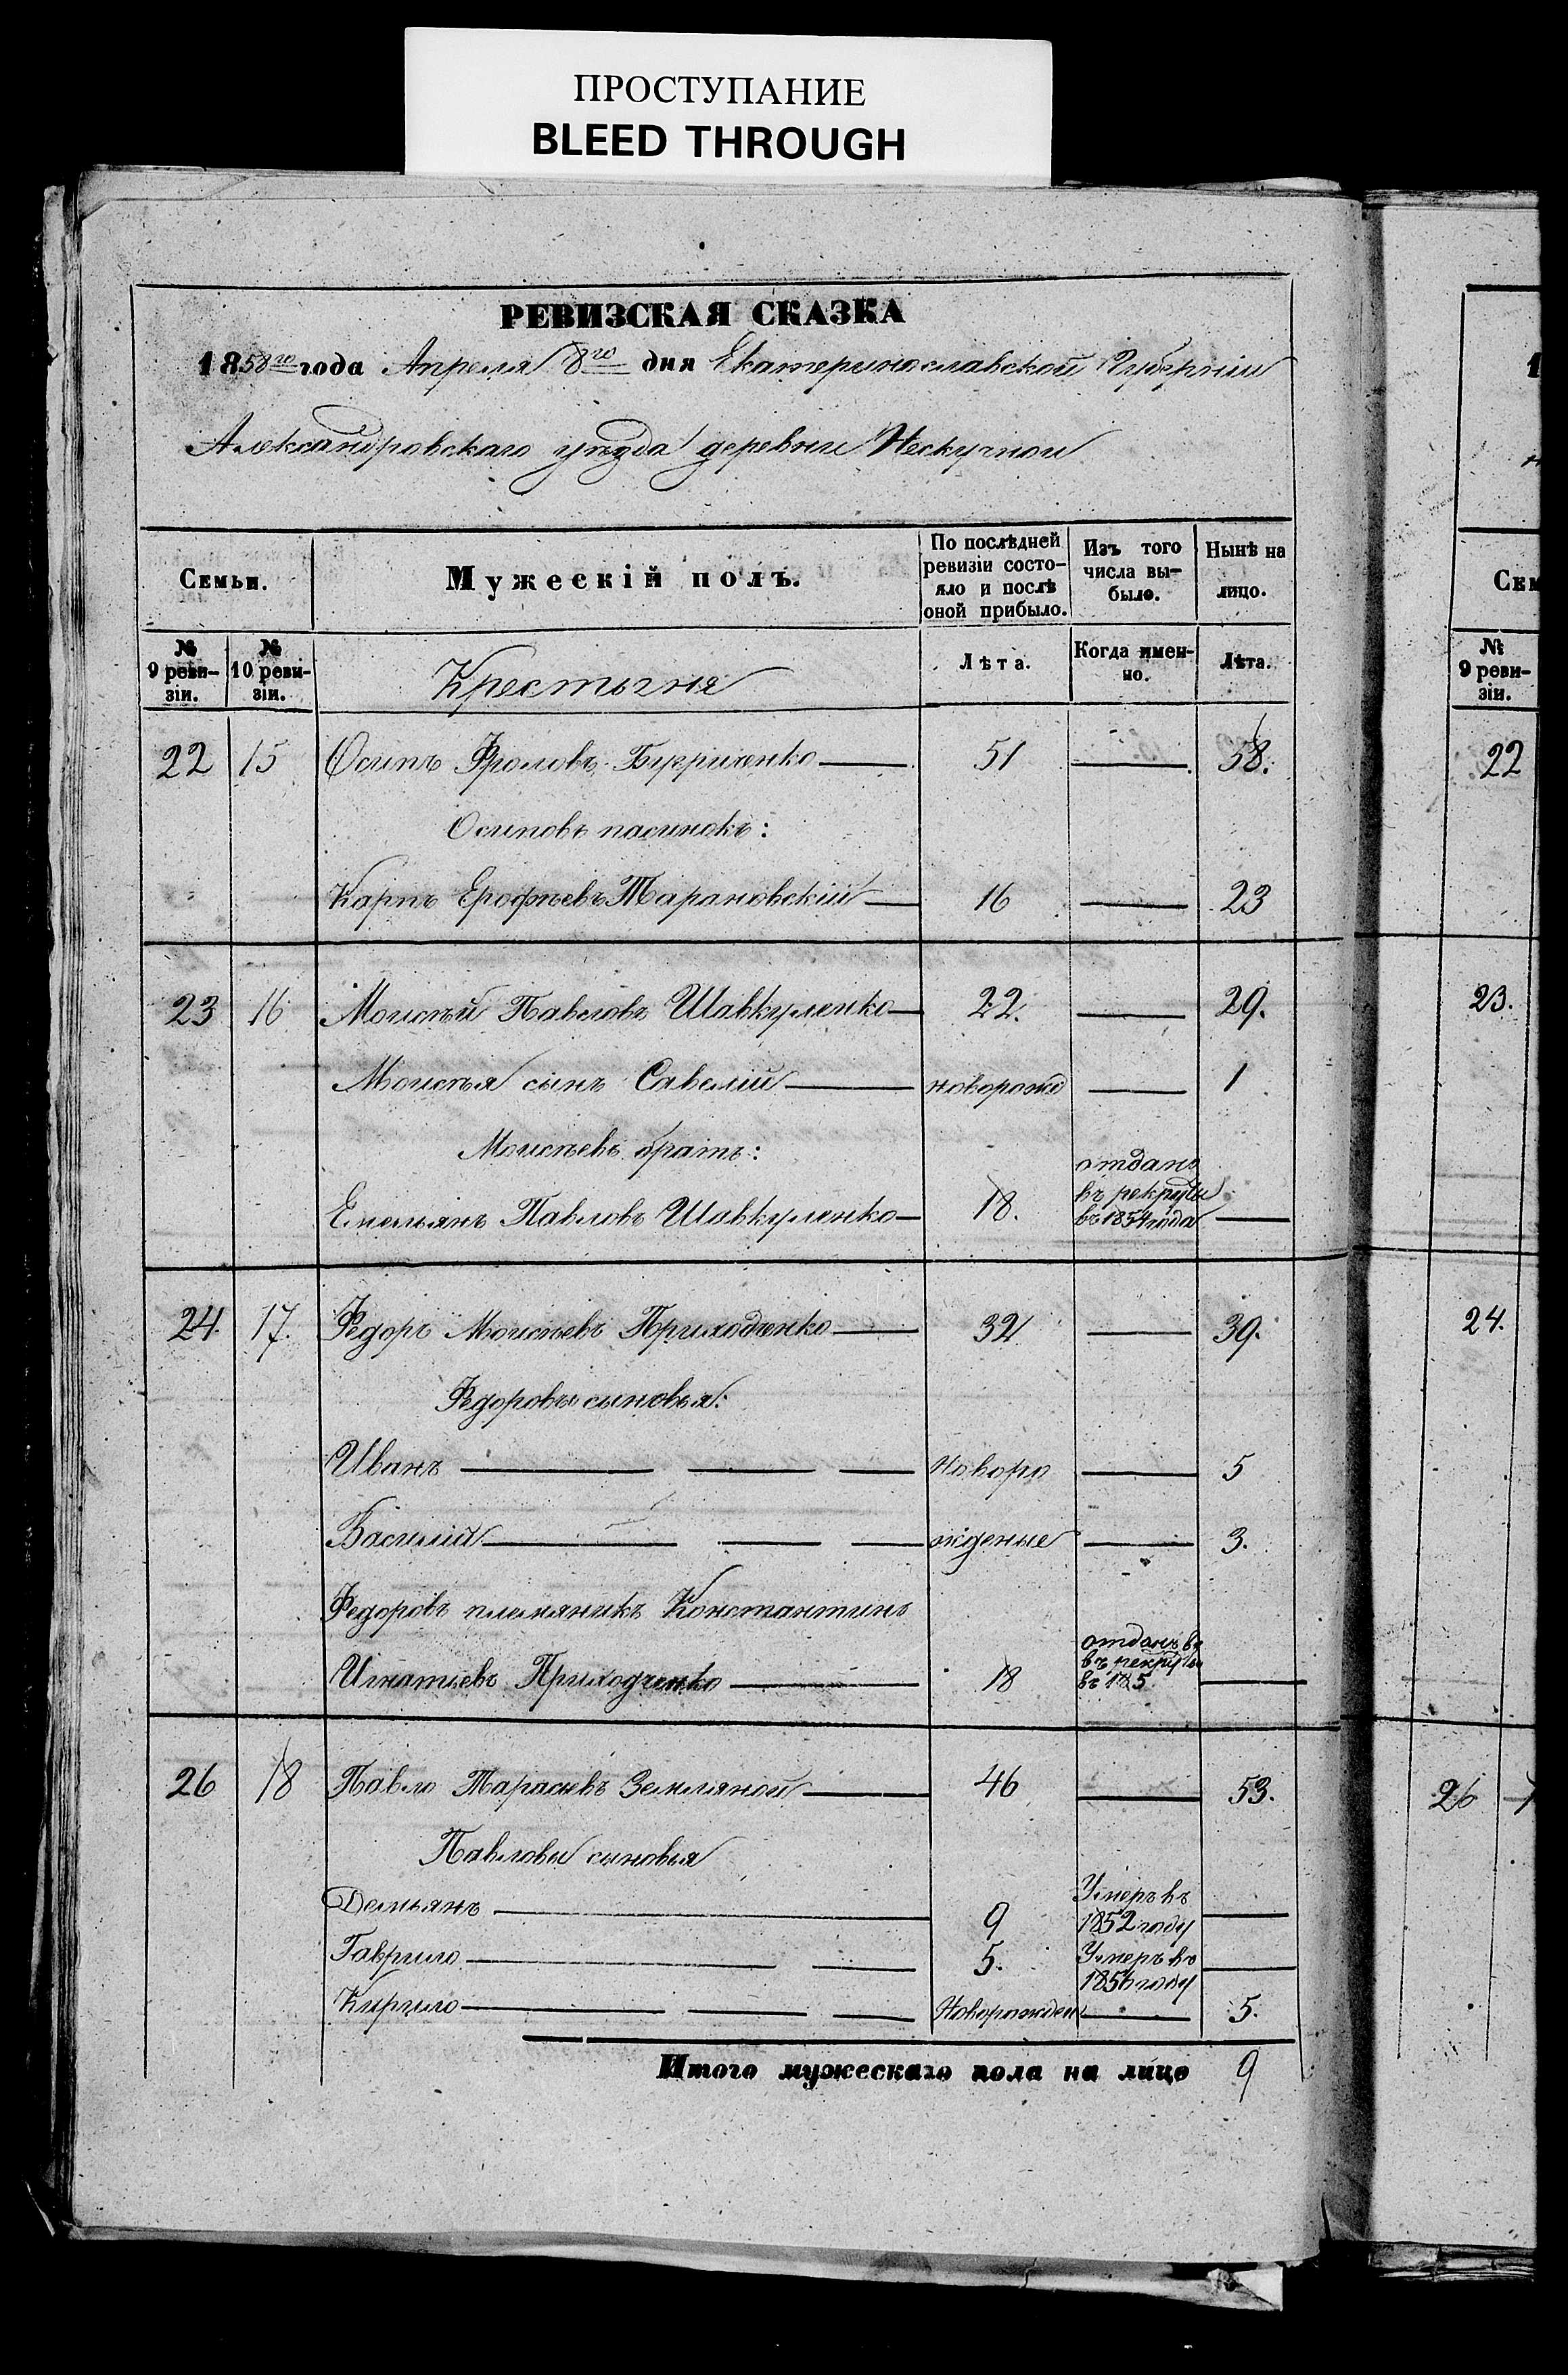 ПРОСТУПАНИЕ
BLEED THROUGH
РЕВИЗСКАЯ СКАЗКА
1858го года Апреля 8го дня Екатеринославской Губерніи
Александровскаго уѣзда деревни Нескучной
Семьи. Мужескій полъ. По послѣдней ревизіи состояло и послѣ оной прибыло. Изъ того числа выбыло. Нынѣ на лицо.
№ 9 ревизіи. № 10 ревизіи. Крестьяня Лѣта. Когда именно. Лѣта.
22 15 Осипъ Фроловъ 51 58.
Осиповъ пасинокъ:
Карпъ Ерофѣевъ Тарановскій 16 23
23 16 Моисѣй Павловъ Шавкуленко 22. 29.
Моисѣя сынъ Савелій новорожд 1
Моисѣевъ братъ:
Емельянъ Павловъ Шавкуленко 18. отданъ въ рекруты въ 1854 года
24. 17. Федоръ Моисѣевъ Приходченко 32 39.
Федоровы сыновья:
Иванъ Новоро 5
Василій жденые 3.
Федоровъ племяникъ Константинъ
Игнатьевъ Приходченко 18 отданъ въ рекруты въ 185
26 18 Павло Тарасьевъ Земляной 46 53.
Павловы сыновья
Демьянъ 9 Умеръ въ 1852 году
Гаврило 5. Умеръ въ 1856 году
Кирило Новорожден 5.
Итого мужескаго пола на лицо 9
1
Сем
№ 9 ревизіи.
22
23.
24.
26